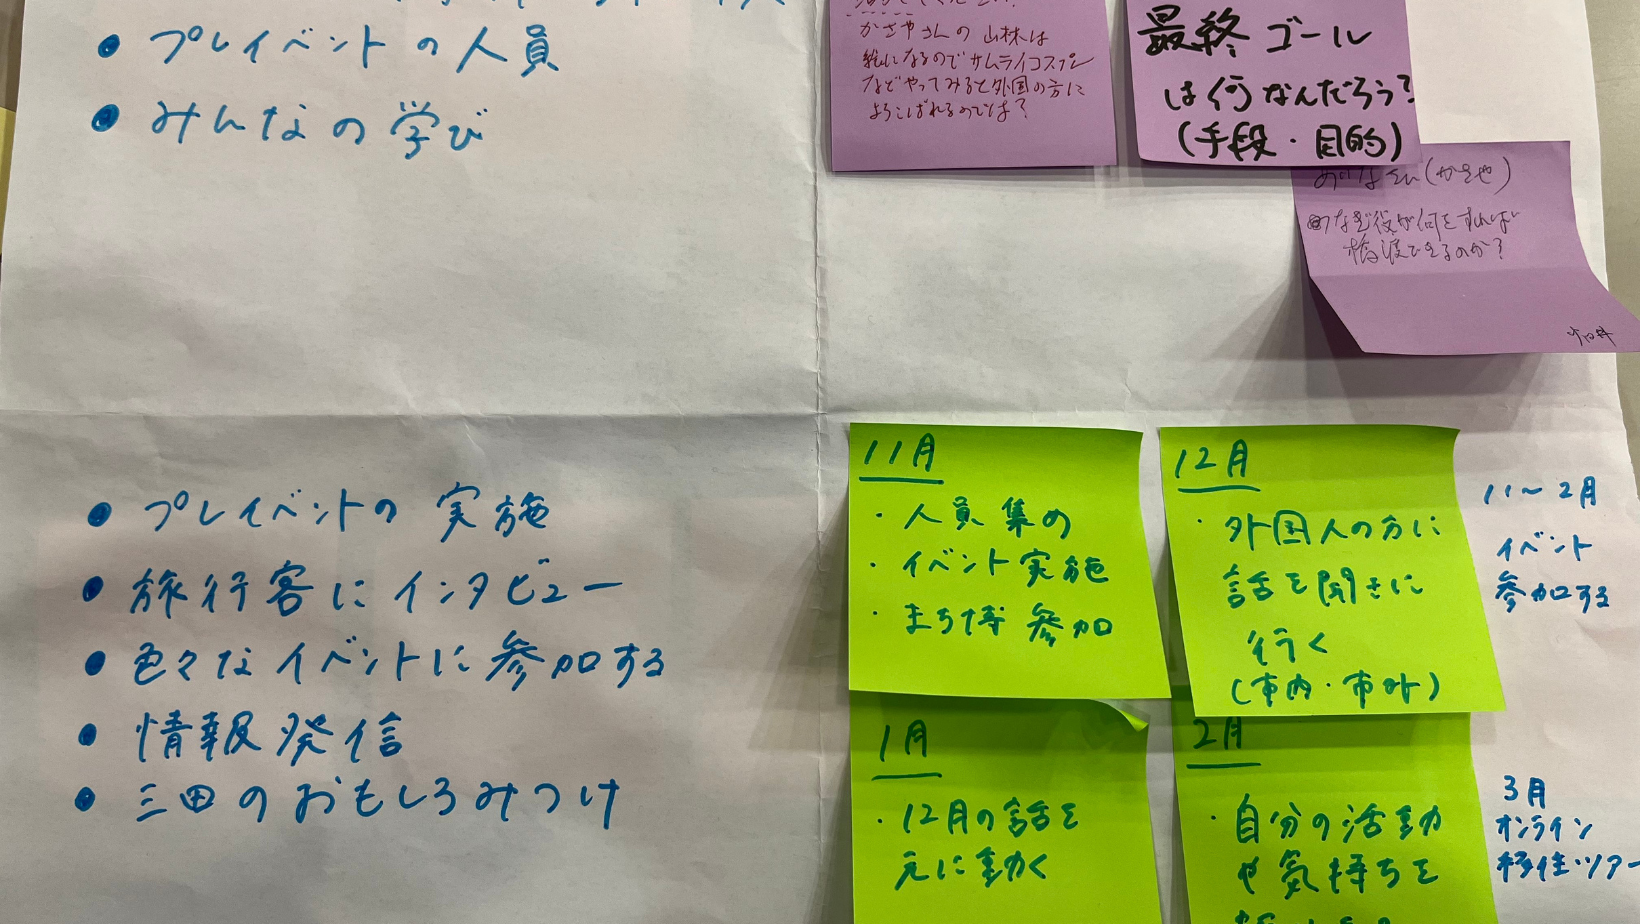 • プレイベントの人員
• みんなの学び
かさやさんの山林は
絵になるのでサムライコスプレ
などやってみると外国の方に
よろこばれるのでは？
最終ゴール
は何なんだろう？
(手段・目的)
(かさや)
なぜ役が何をすれば
橋渡できるのか？
• プレイベントの実施
• 旅行客にインタビュー
• 色々なイベントに参加する
• 情報発信
• 三田のおもしろみつけ
11月
・人員集め
・イベント実施
・まち博参加
12月
・外国人の方に
話を聞きに
行く
(市内・市外)
11〜2月
イベント
参加する
1月
・12月の話を
元に動く
2月
・自分の活動
や気持ちを
3月
オンライン
移住ツアー